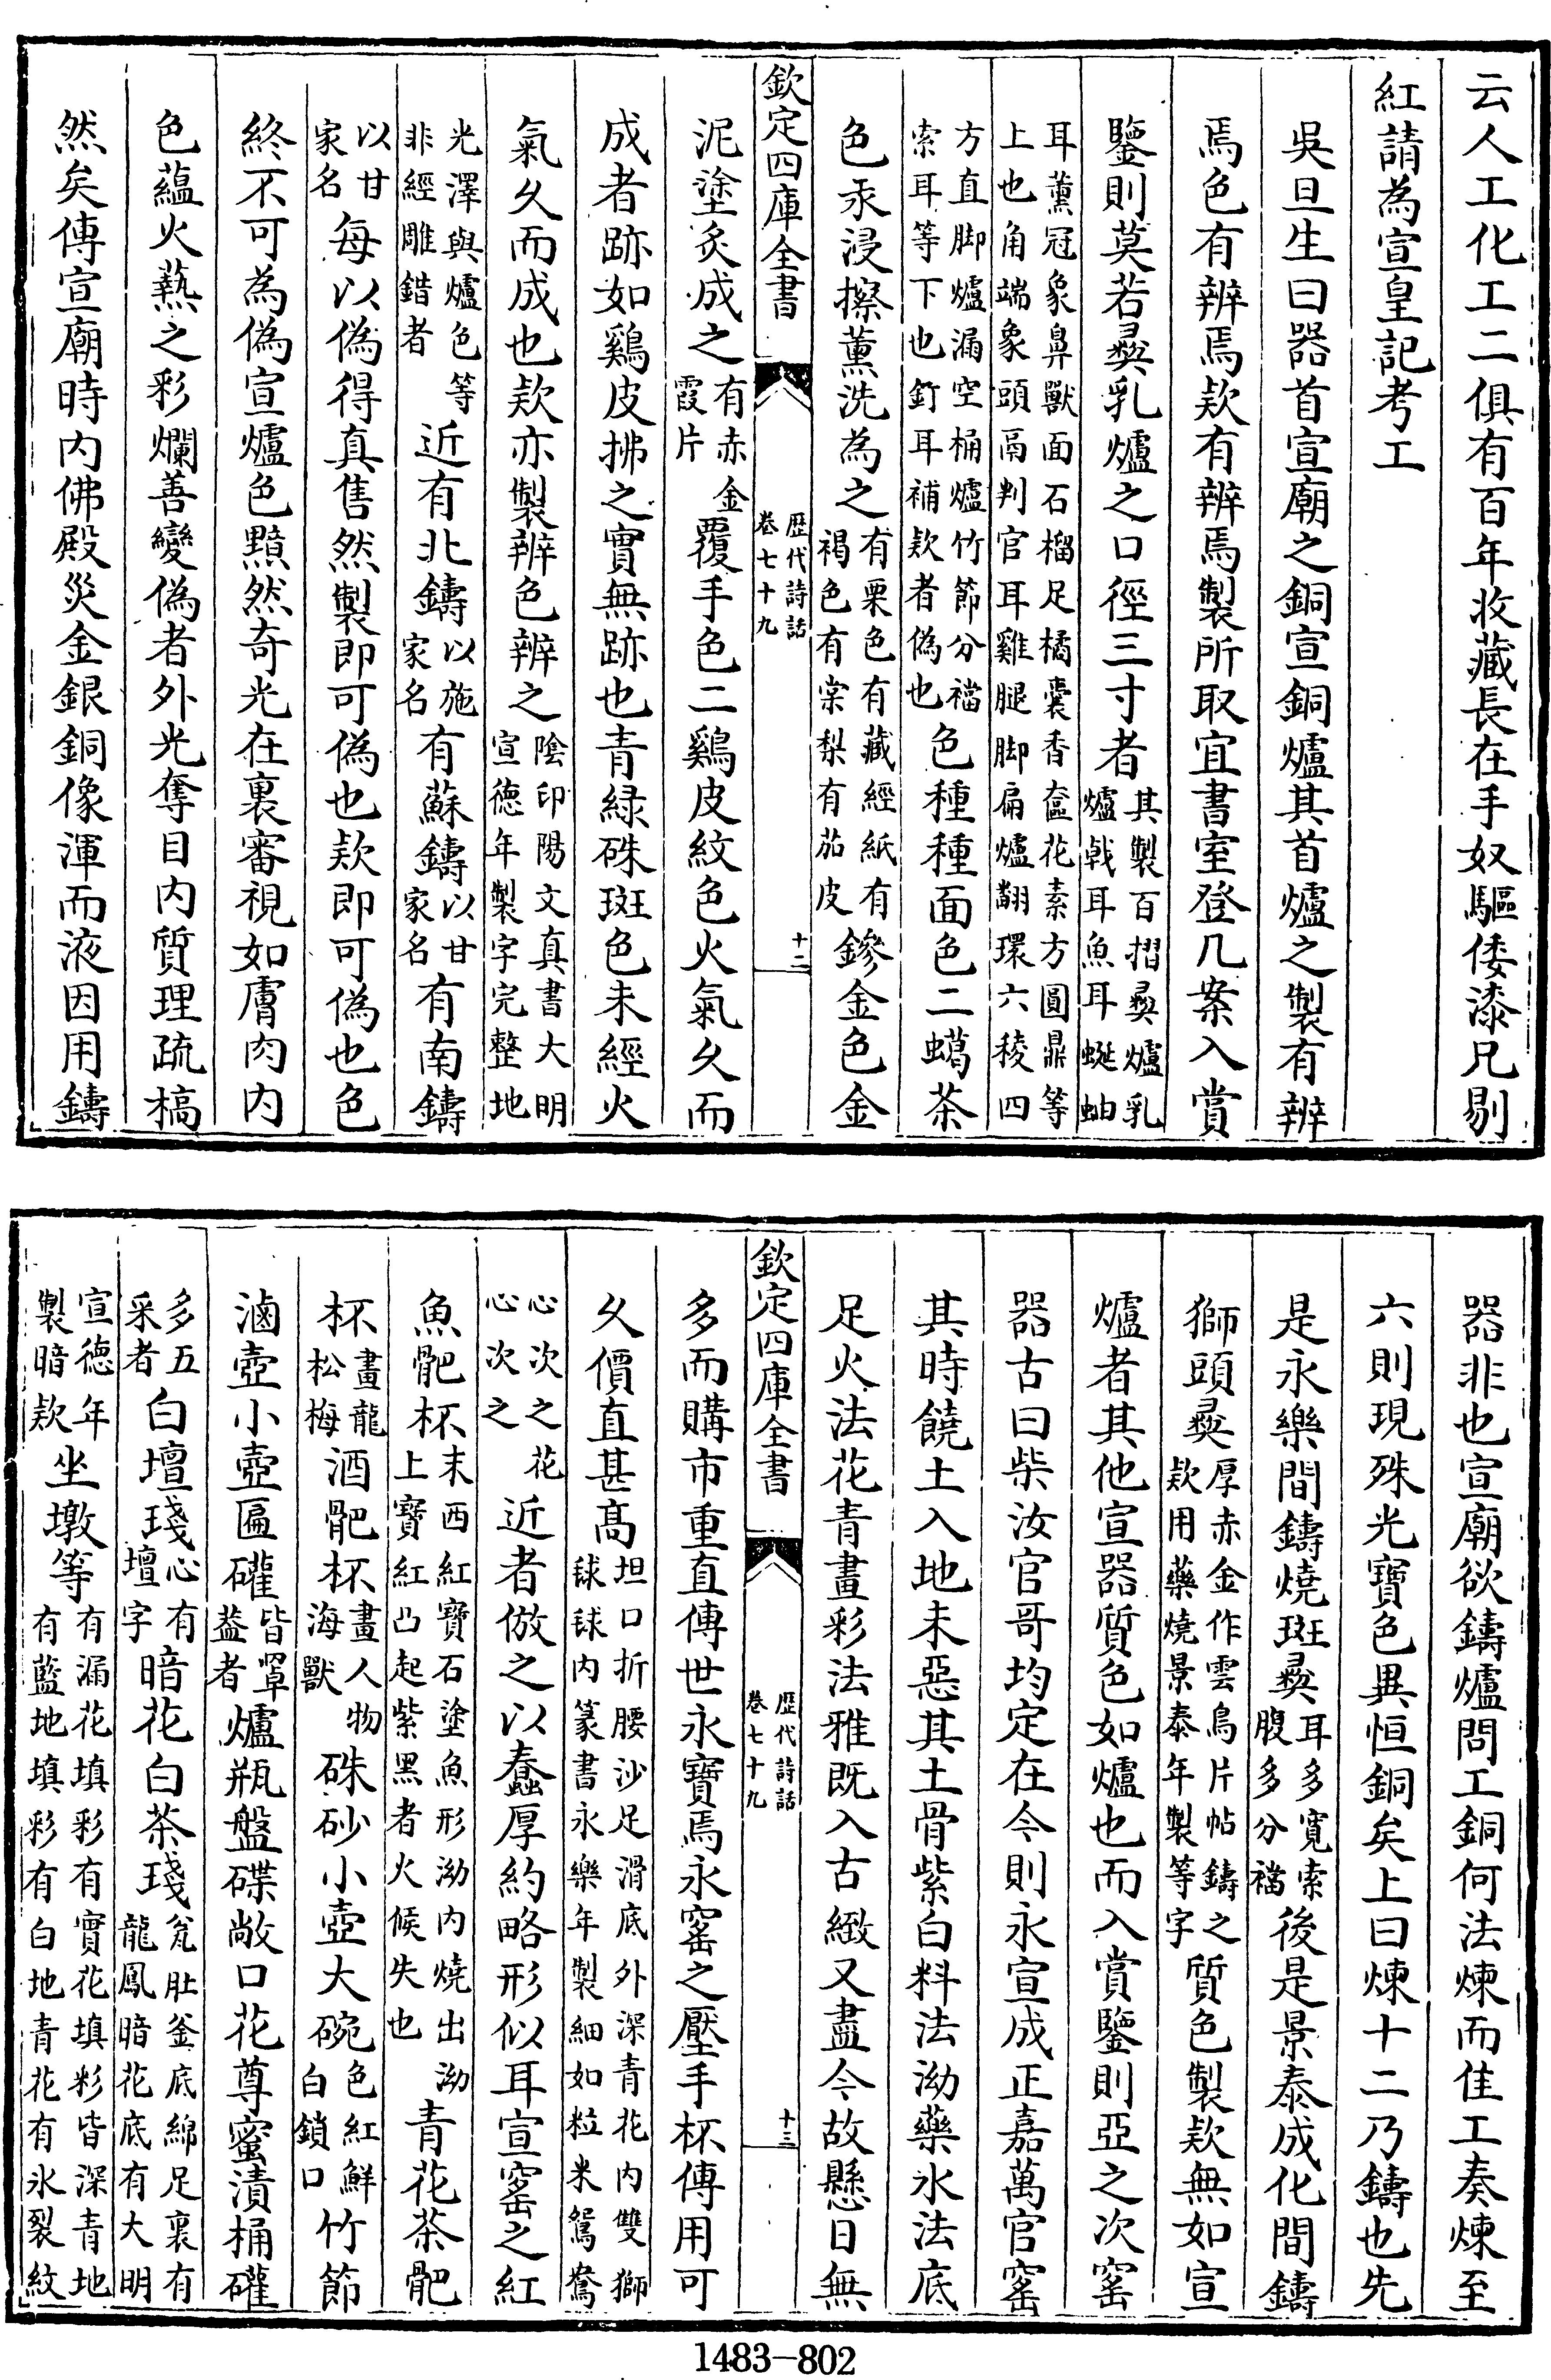 云人工化工二俱有百年收藏長在手奴驅倭漆兄剔
紅請為宣皇記考工
吳旦生曰器首宣廟之銅宣銅爐其首爐之製有辨
焉色有辨焉欵有辨焉製所取宜書室登几案入賞
鑒則莫若彛乳爐之口徑三寸者其製百摺彛爐乳爐戟耳魚耳蜒蚰
耳薰冠象鼻獸面石榴足橘囊香奩花素方圓鼎等上也角端象頭鬲判官耳雞腿脚扁爐翻環六稜四
方直脚爐漏空桶爐竹節分襠索耳等下也釘耳補欵者偽也色種種面色二蠟茶
色汞浸擦薰洗為之有栗色有藏經紙有褐色有棠梨有茄皮鏒金色金
欽定四庫全書
歴代詩話
卷七十九
十二
泥塗炙成之有赤金霞片覆手色二鷄皮紋色火氣久而
成者跡如鷄皮拂之實無跡也青綠硃斑色未經火
氣久而成也欵亦製辨色辨之陰印陽文真書大明宣德年製字完整地
光澤與爐色等非經雕錯者近有北鑄以施家名有蘇鑄以甘家名有南鑄
以甘家名每以偽得真售然製即可偽也欵即可偽也色
終不可為偽宣爐色黯然奇光在裏審視如膚肉內
色蘊火爇之彩爛善變偽者外光奪目內質理疏槁
然矣傳宣廟時內佛殿災金銀銅像渾而液因用鑄
器非也宣廟欲鑄爐問工銅何法煉而佳工奏煉至
六則現殊光寶色異恒銅矣上曰煉十二乃鑄也先
是永樂間鑄燒斑彛耳多寬索腹多分襠後是景泰成化間鑄
獅頭彛厚赤金作雲鳥片帖鑄之欵用藥燒景泰年製等字質色製欵無如宣
爐者其他宣器質色如爐也而入賞鑒則亞之次窑
器古曰柴汝官哥均定在今則永宣成正嘉萬官窑
其時饒土入地未惡其土骨紫白料法泑藥水法底
足火法花青畫彩法雅既入古緻又盡今故懸日無
欽定四庫全書
歴代詩話
卷七十九
十三
多而購市重直傳世永寶焉永窑之壓手杯傳用可
久價直甚髙坦口折腰沙足滑底外深青花內雙獅毬毬內篆書永樂年製細如粒米鴛鴦
心次之花心次之近者倣之以蠢厚約略形似耳宣窑之紅
魚靶杯末西紅寶石塗魚形泑內燒出泑上寶紅凸起紫黑者火候失也青花茶靶
杯畫龍松梅酒靶杯畫人物海獸硃砂小壺大碗色紅鮮白鎖口竹節
滷壺小壺匾礶皆罩葢者爐瓶盤碟敞口花尊蜜漬桶礶
多五采者白壇琖心有壇字暗花白茶琖瓮肚釜底綿足裏有龍鳳暗花底有大明
宣德年製暗欵坐墩等有漏花填彩有實花填彩皆深青地有藍地填彩有白地青花有氷裂紋
1483-802